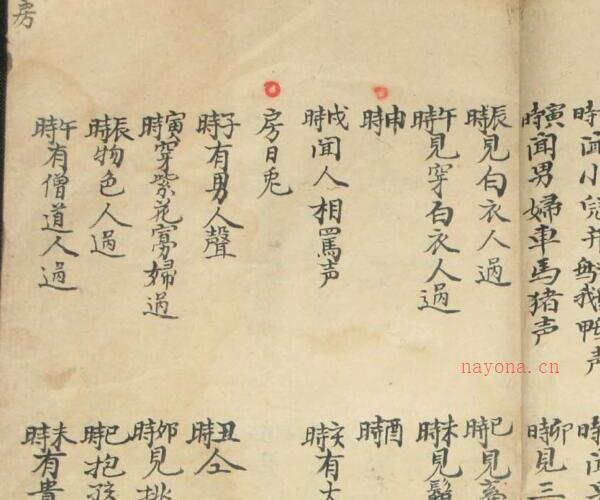 時聞小兒并
寅時聞男婦車馬猪声
卯時見三
辰時見白衣人過
巳時見
午時見穿白衣人過
未時見
申時
酉時
戌時聞人相罵声
亥時有大
房日兎
子時有男人聲
丑時
寅時穿紫花寡婦過
卯時見
辰時物色人過
巳時抱孩
午時有僧道人過
未時有貴
房
nayona.cn